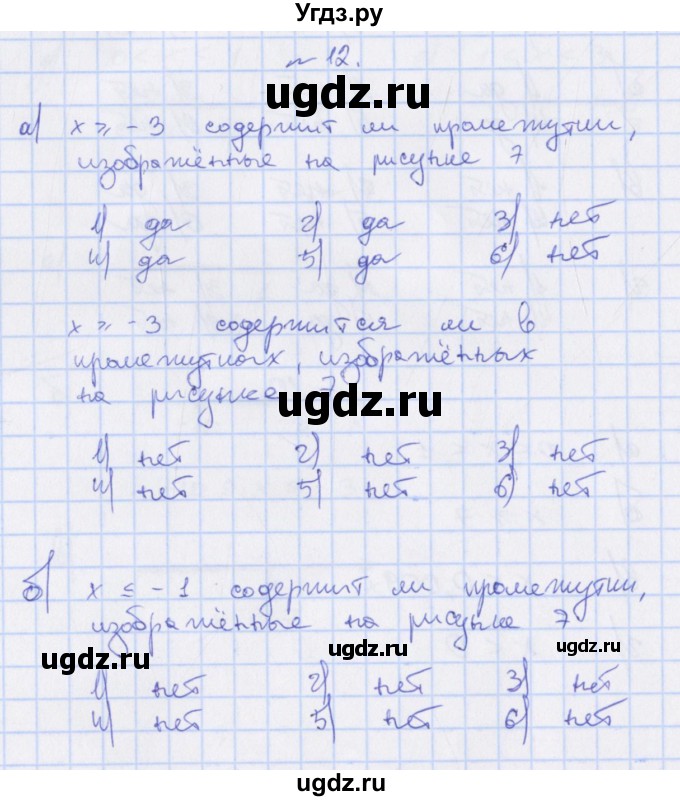 Угдз.ру
№ 12.
ugdz.ru
а) x ≥ -3 содержит ли промежутки,
изображённые на рисунке 7
1) да 2) да 3) нет
4) да 5) да 6) нет
ugdz.ru
x ≥ -3 содержится ли в
промежутках, изображённых
на рисунке 7
ugdz.ru
1) нет 2) нет 3) нет
4) нет 5) нет 6) нет
б) x ≤ -1 содержит ли промежутки,
изображённые на рисунке 7
ugdz.ru ugdz.ru ugdz.ru
1) нет 2) нет 3) нет
4) нет 5) нет 6) нет
ugdz.ru